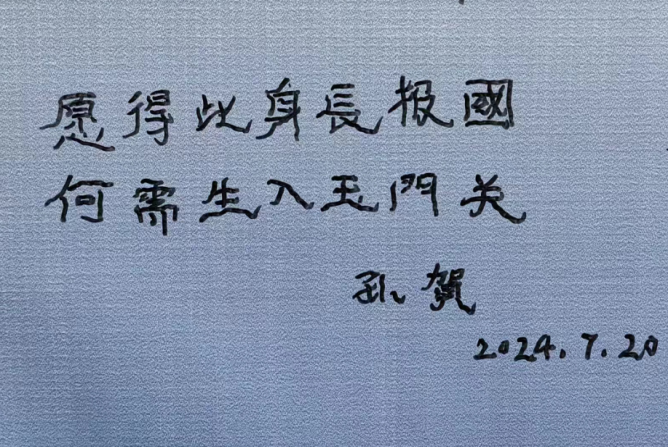 愿得此身長报國
何需生入玉門关
孙贺
2024.7.20